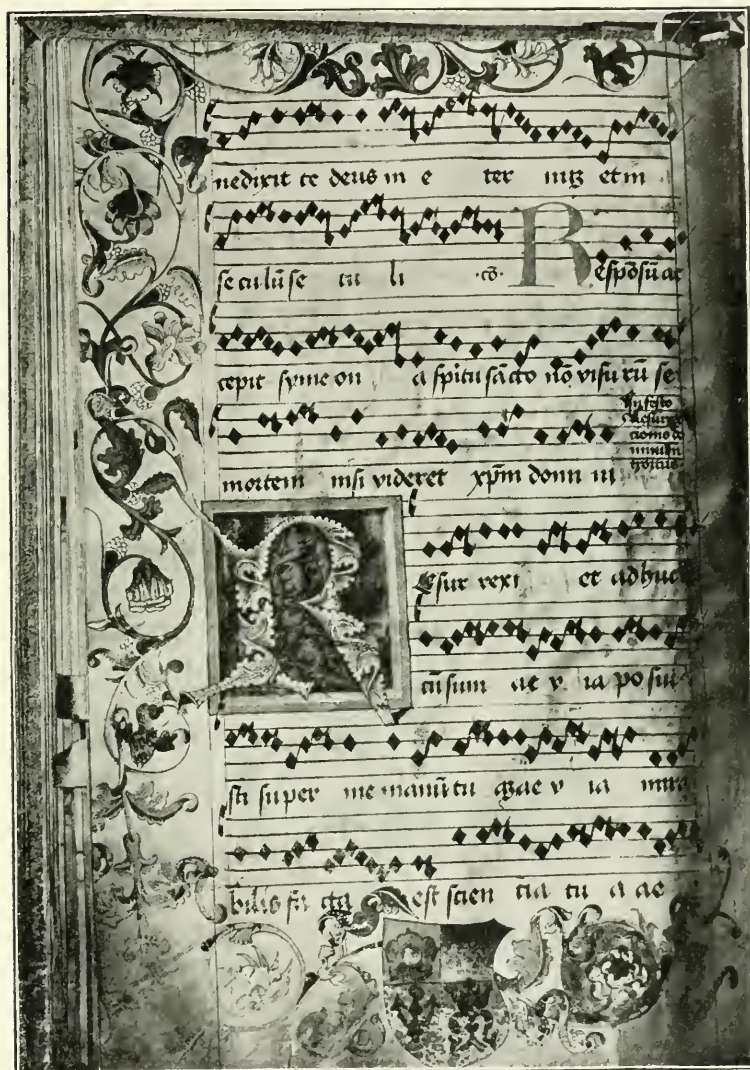 nedixit te deus in e ter nuʒ et in
se culū se cu li ·cō· Respōsū ac
cepit syme on a spiritu sācto nō visu rū se
mortem nisi videret xp̄m domi ni
In festo
Resurre
ctionis do
mini
Introitus
Resur rexi et adhuc
tecū sum ae v ia po sui
sti super me manū tu ā ae v ia mira
bilis fa cta est scien tia tu a ae